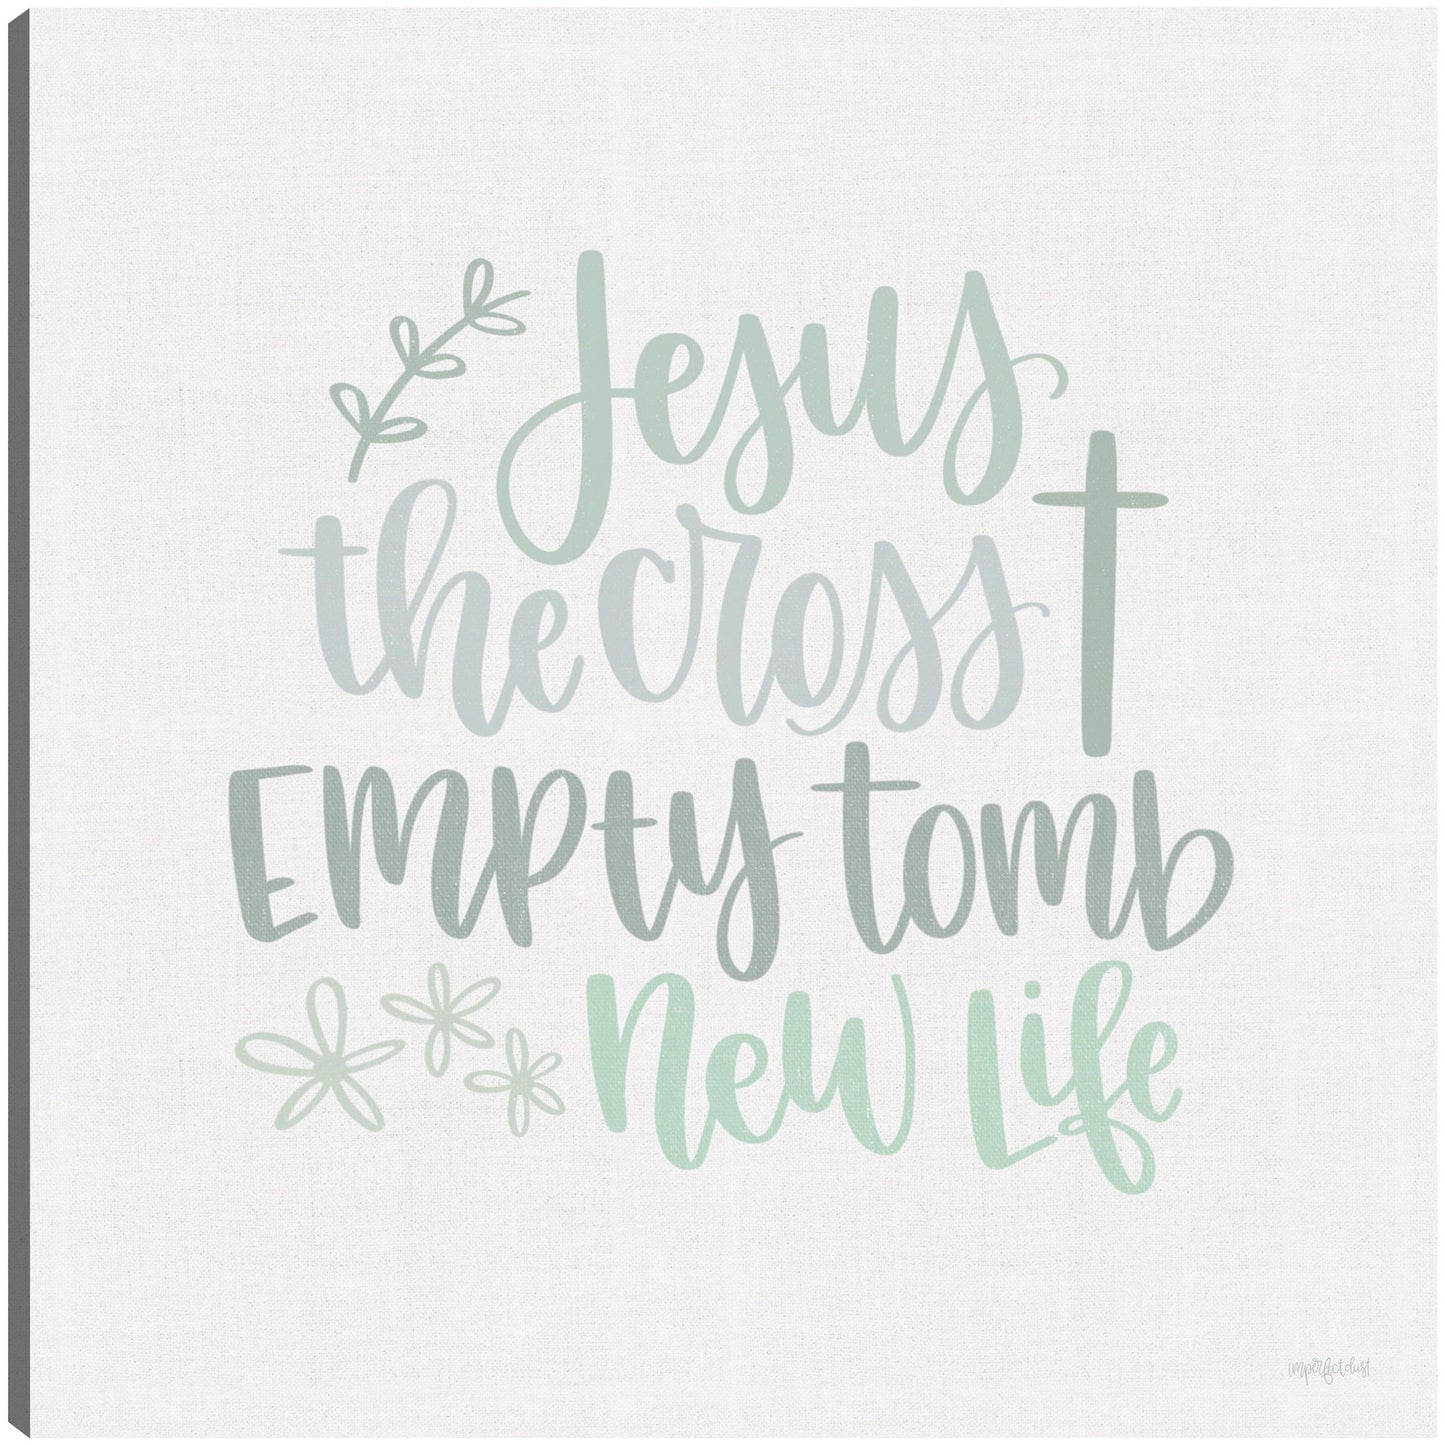 Jesus
the cross
Empty tomb
New Life
imperfect dust